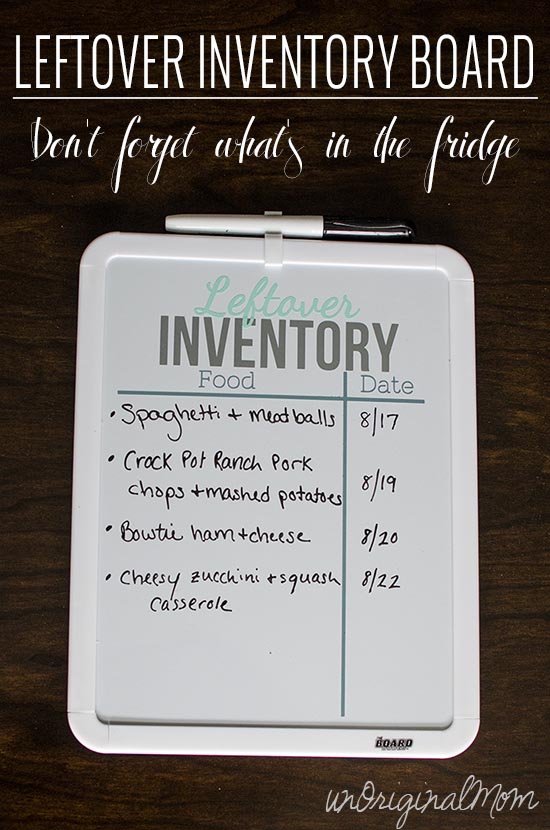 LEFTOVER INVENTORY BOARD
Don't forget what's in the fridge
Leftover
INVENTORY
Food Date
• Spaghetti + meatballs 8/17
• Crock Pot Ranch Pork
chops + mashed potatoes 8/19
• Bowtie ham + cheese 8/20
• Cheesy zucchini + squash 8/22
casserole
THE BOARD
unOriginalMom